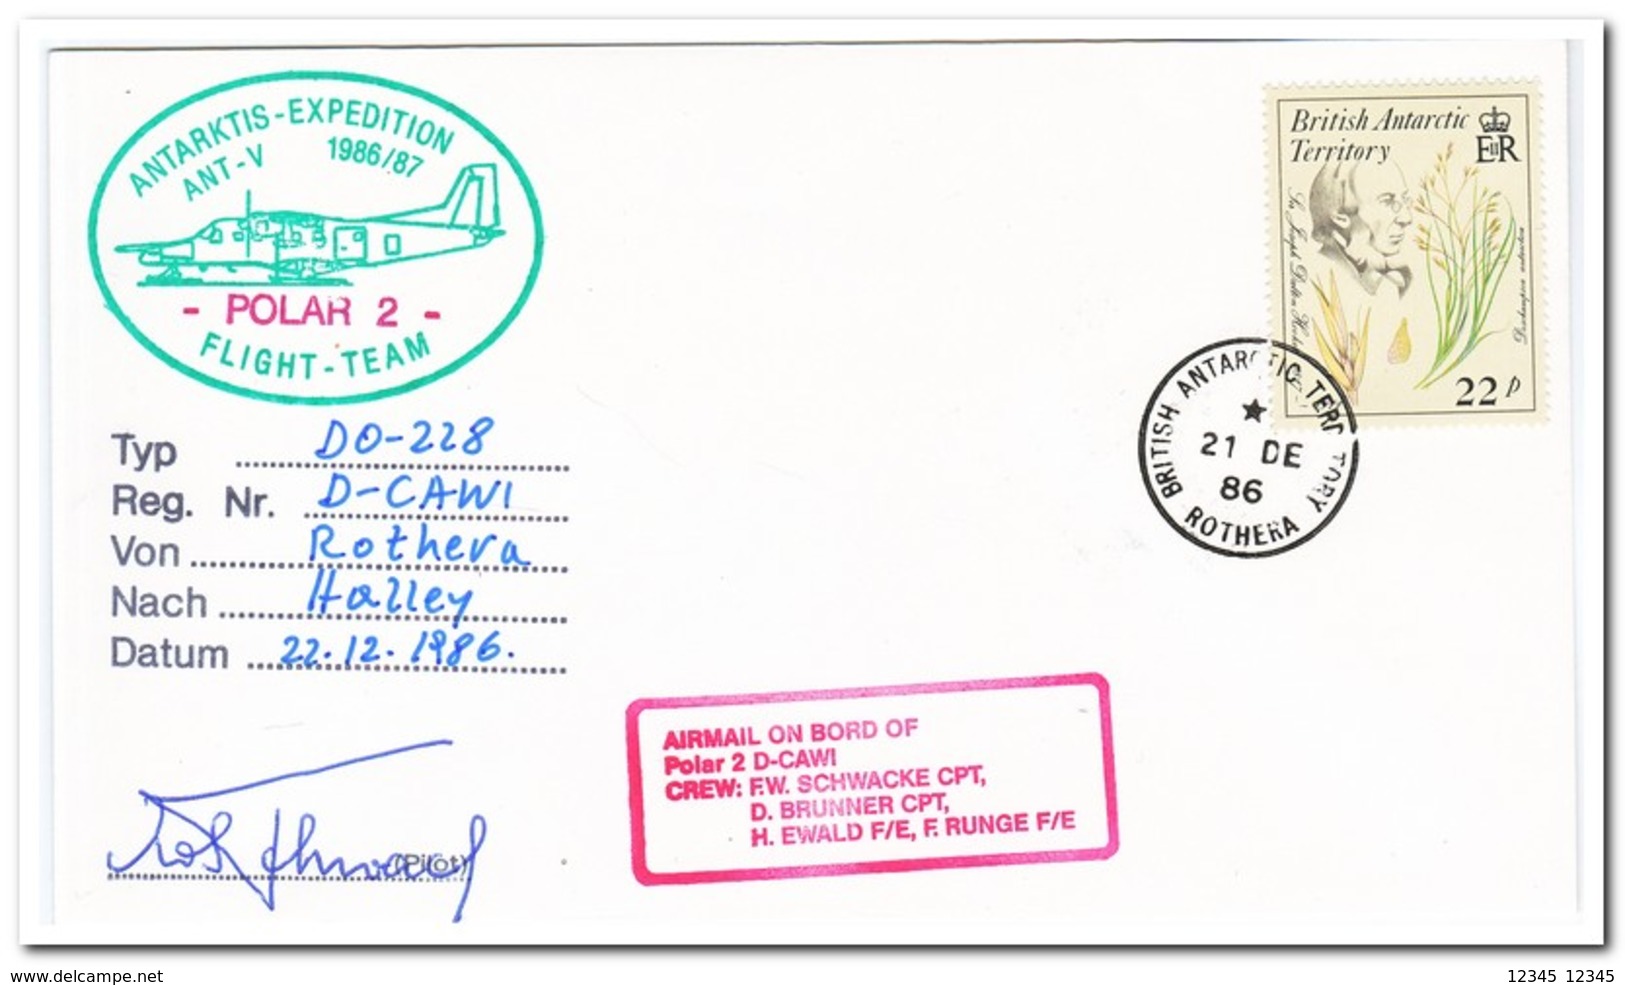 ANTARKTIS-EXPEDITION
ANT-V 1986/87
- POLAR 2 -
FLIGHT-TEAM
British Antarctic
Territory
EIIR
Sir Joseph Dalton Hooker
Deschampsia antarctica
22p
BRITISH ANTARCTIC TERRITORY
21 DE
86
ROTHERA
Typ DO-228
Reg. Nr. D-CAWI
Von Rothera
Nach Halley
Datum 22.12.1986.
(Pilot)
AIRMAIL ON BORD OF
Polar 2 D-CAWI
CREW: F.W. SCHWACKE CPT,
D. BRUNNER CPT,
H. EWALD F/E, F. RUNGE F/E
www.delcampe.net
12345 12345